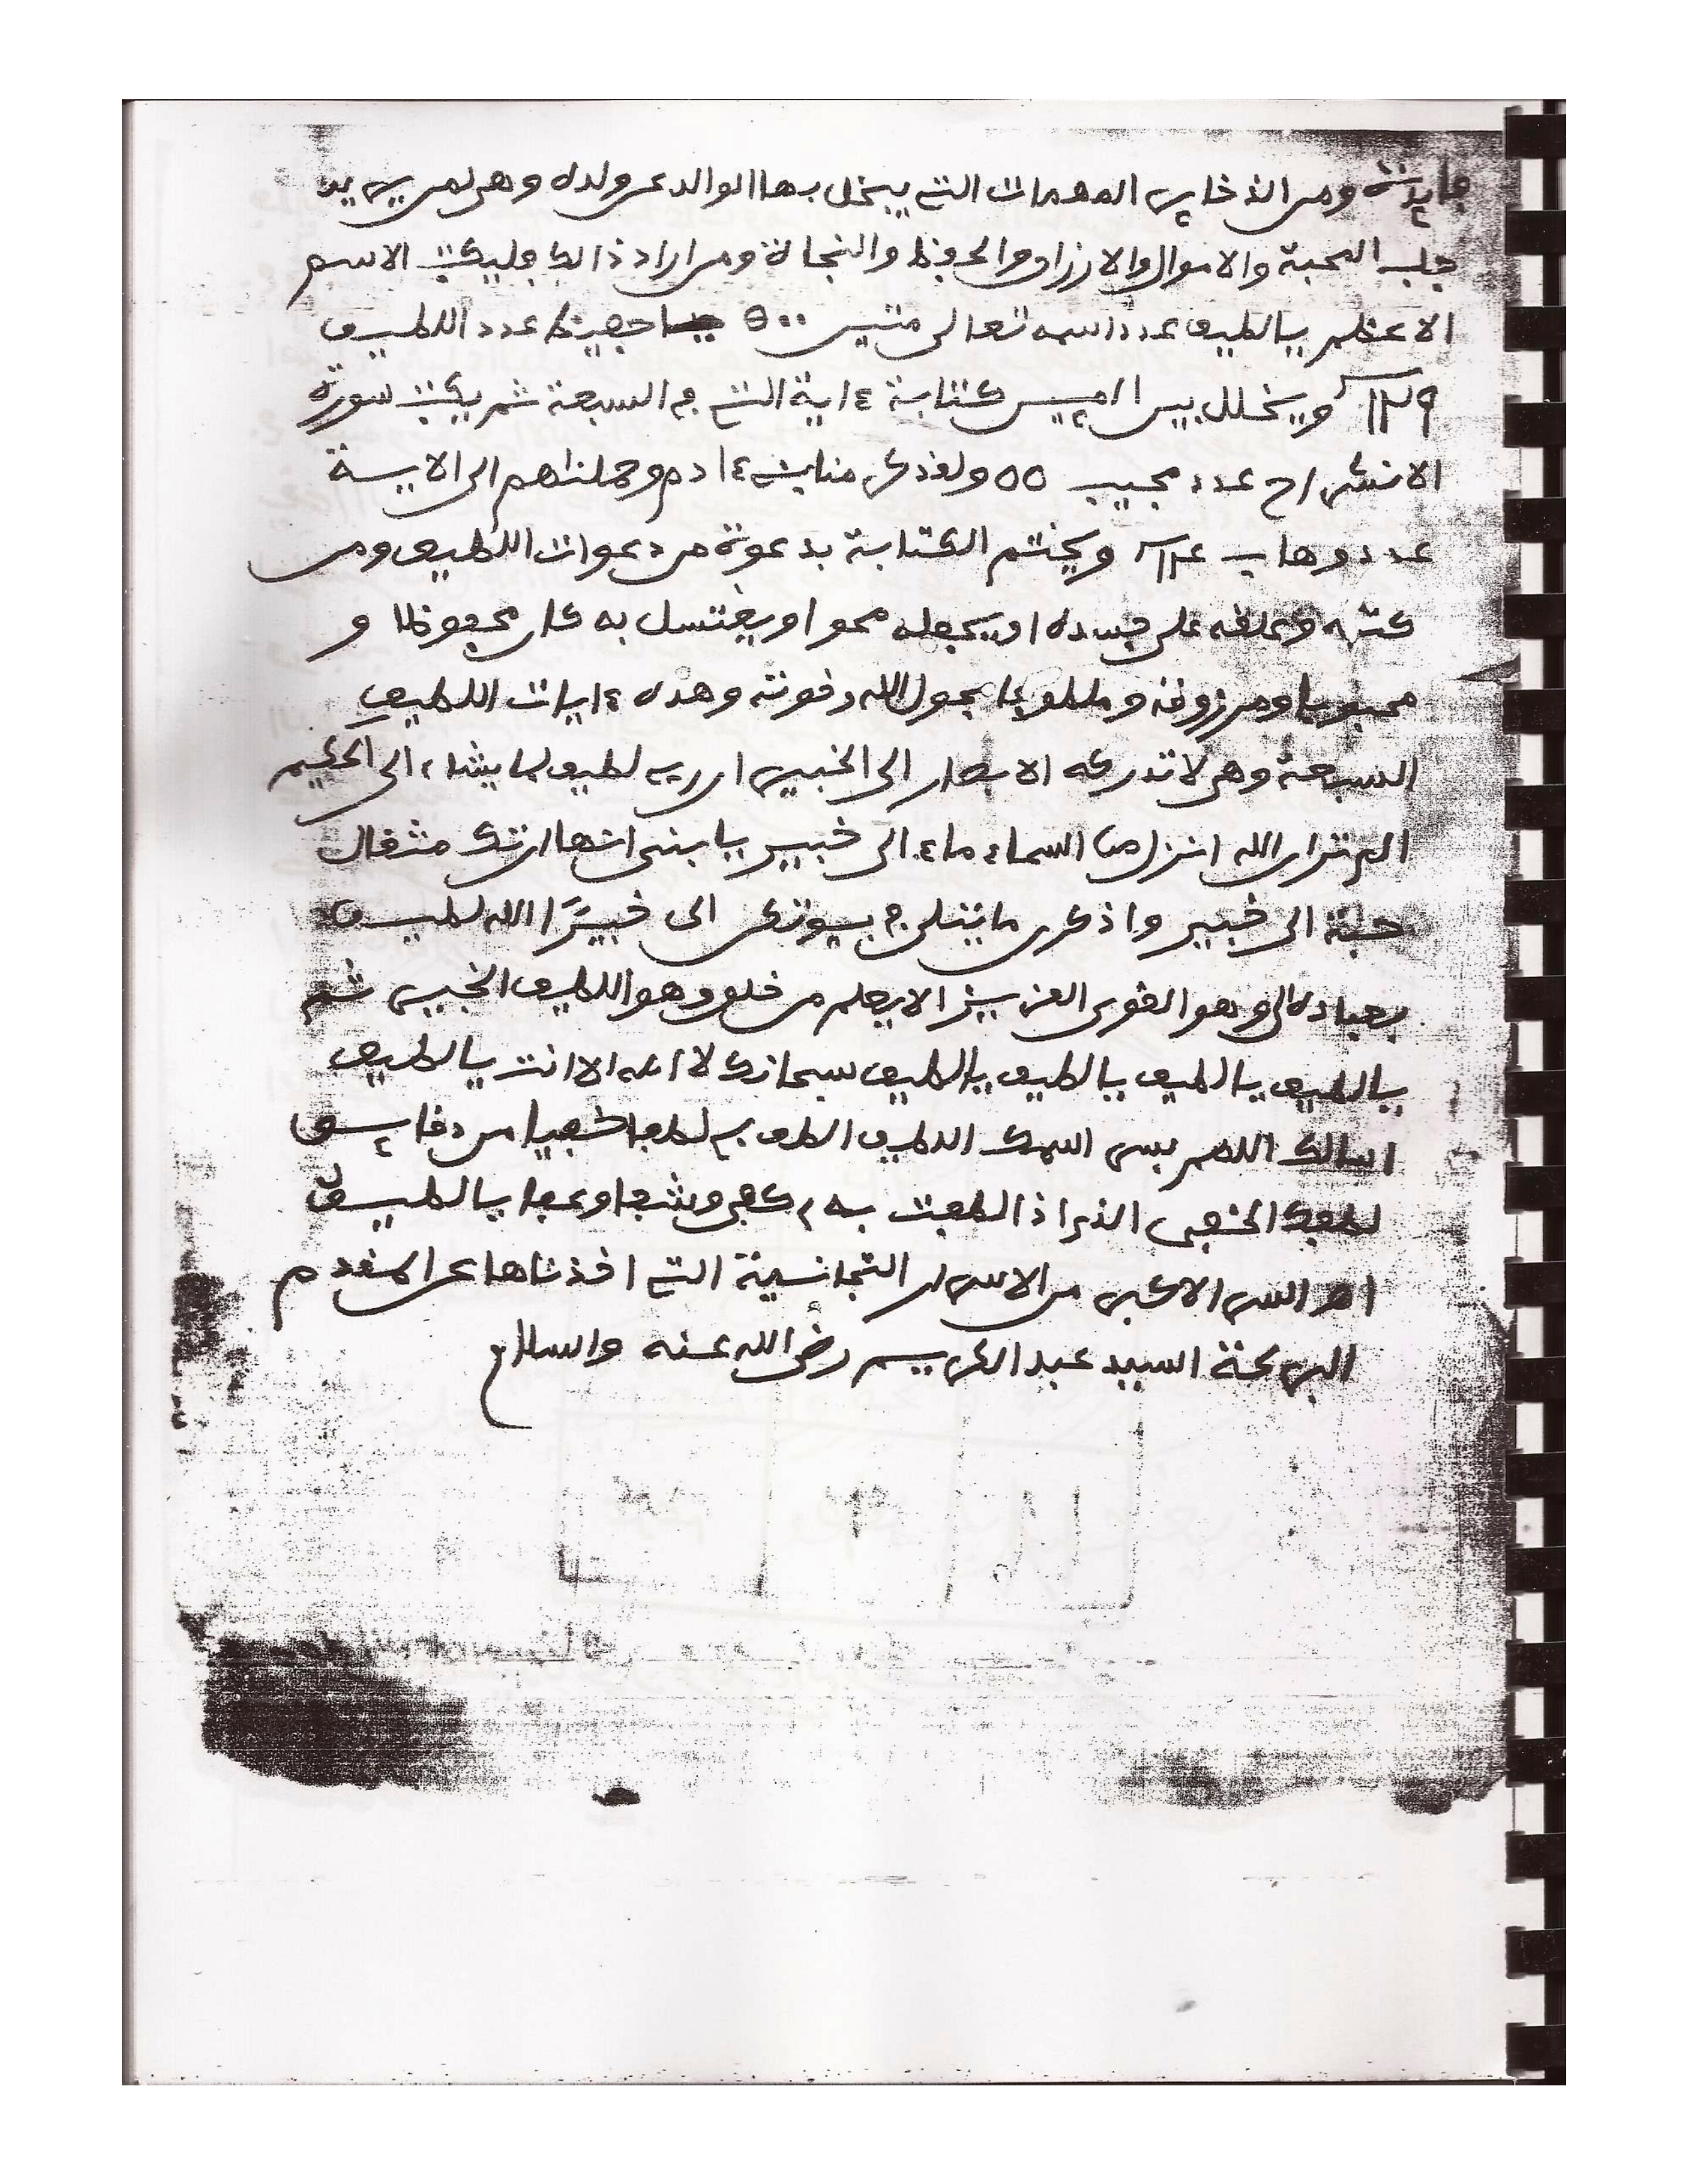 فايدة ومن الذخاير المهمات التي يبخل بها الوالد عن ولده وهي لمن يريد
جلب المحبة والاموال والارزاق والحفظ والنجاة ومن اراد ذالك فليكتب الاسم
الاعظم يالطيف عدد اسمه تعالى متين 500 حفيظ عدد اللطيف
129 ويخلل بين كتابة ءاية التي في السبعة ثم يكتب سورة
الانشراح عدد مجيب 55 ولقد كرمنا بني ءادم وحملناهم الى الاية
عدد وهاب 14 ويختم الكتابة بدعوة من دعوات اللطيف ومن
كتبه وعلقه على جسده او يجعله محوا ويغتسل به كان محفوظا و
محبوبا ومرزوقا ومطلوبا بحول الله وقوته وهذه ءايات اللطيف
السبعة وهي لا تدركه الابصار الى الخبير ان ربي لطيف لما يشاء الى الحكيم
الم تر ان الله انزل من السماء ماء الى خبير يابني انها ان تك مثقال
حبة الى خبير واذكرن ما يتلى في بيوتكن الى خبيرًا الله لطيف
بعباده الى وهو القوي العزيز الا يعلم من خلق وهو اللطيف الخبير ثم
يالطيف يالطيف يالطيف يالطيف سبحانك لا اله الا انت يالطيف
اسالك اللهم بسر اسمك اللطيف الطف بي لطفا خفيا من دقايق
لطفك الخفي الذي اذا لطفت به كفى وشفا وعفا يالطيف
اهـ السر الاكبر من الاسرار التجانية التي اخذناها عن المقدم
البركة السيد عبد الكريم رضي الله عنه والسلام